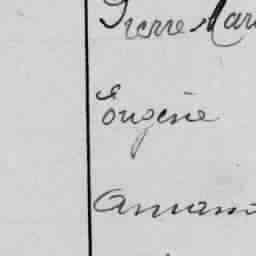 Pierre Mar
Eugène
Aman